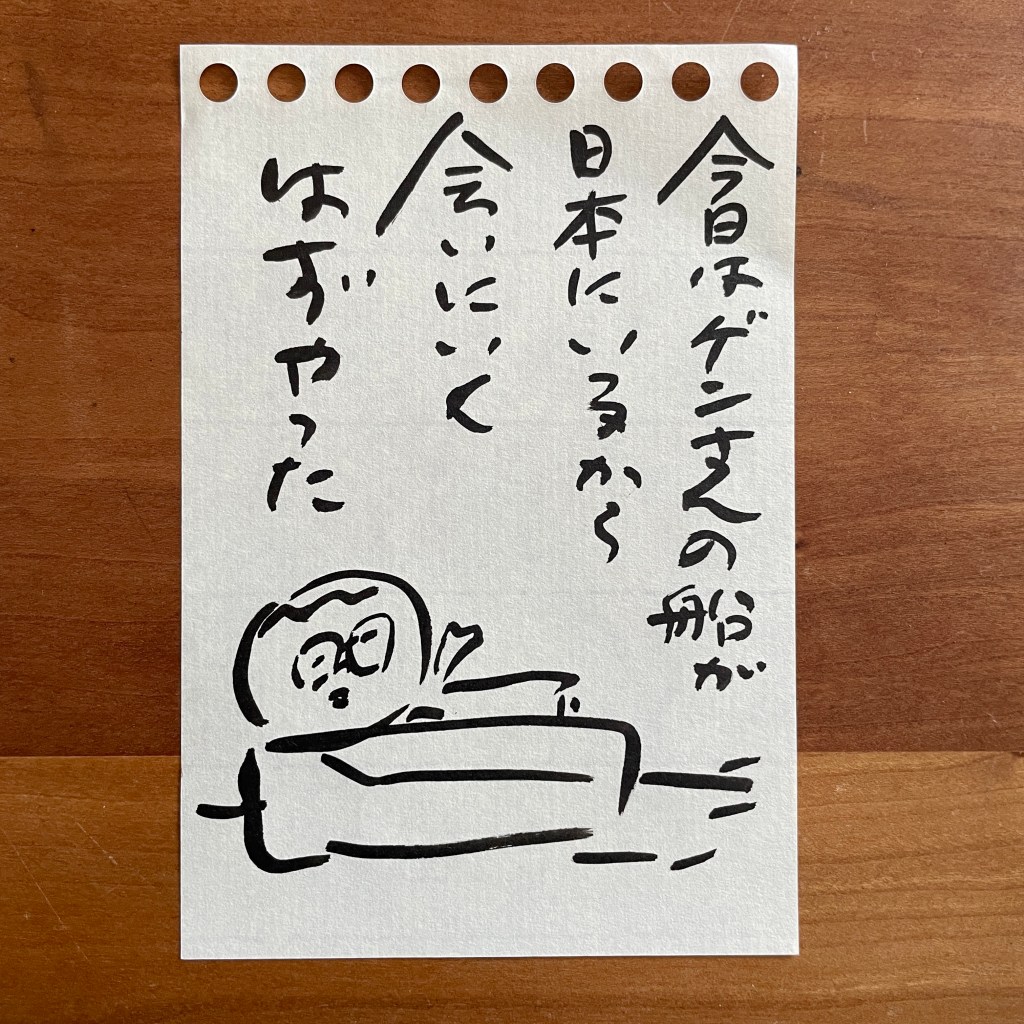 今日はゲンさんの船が
日本にいるから
会いにいく
はずやった